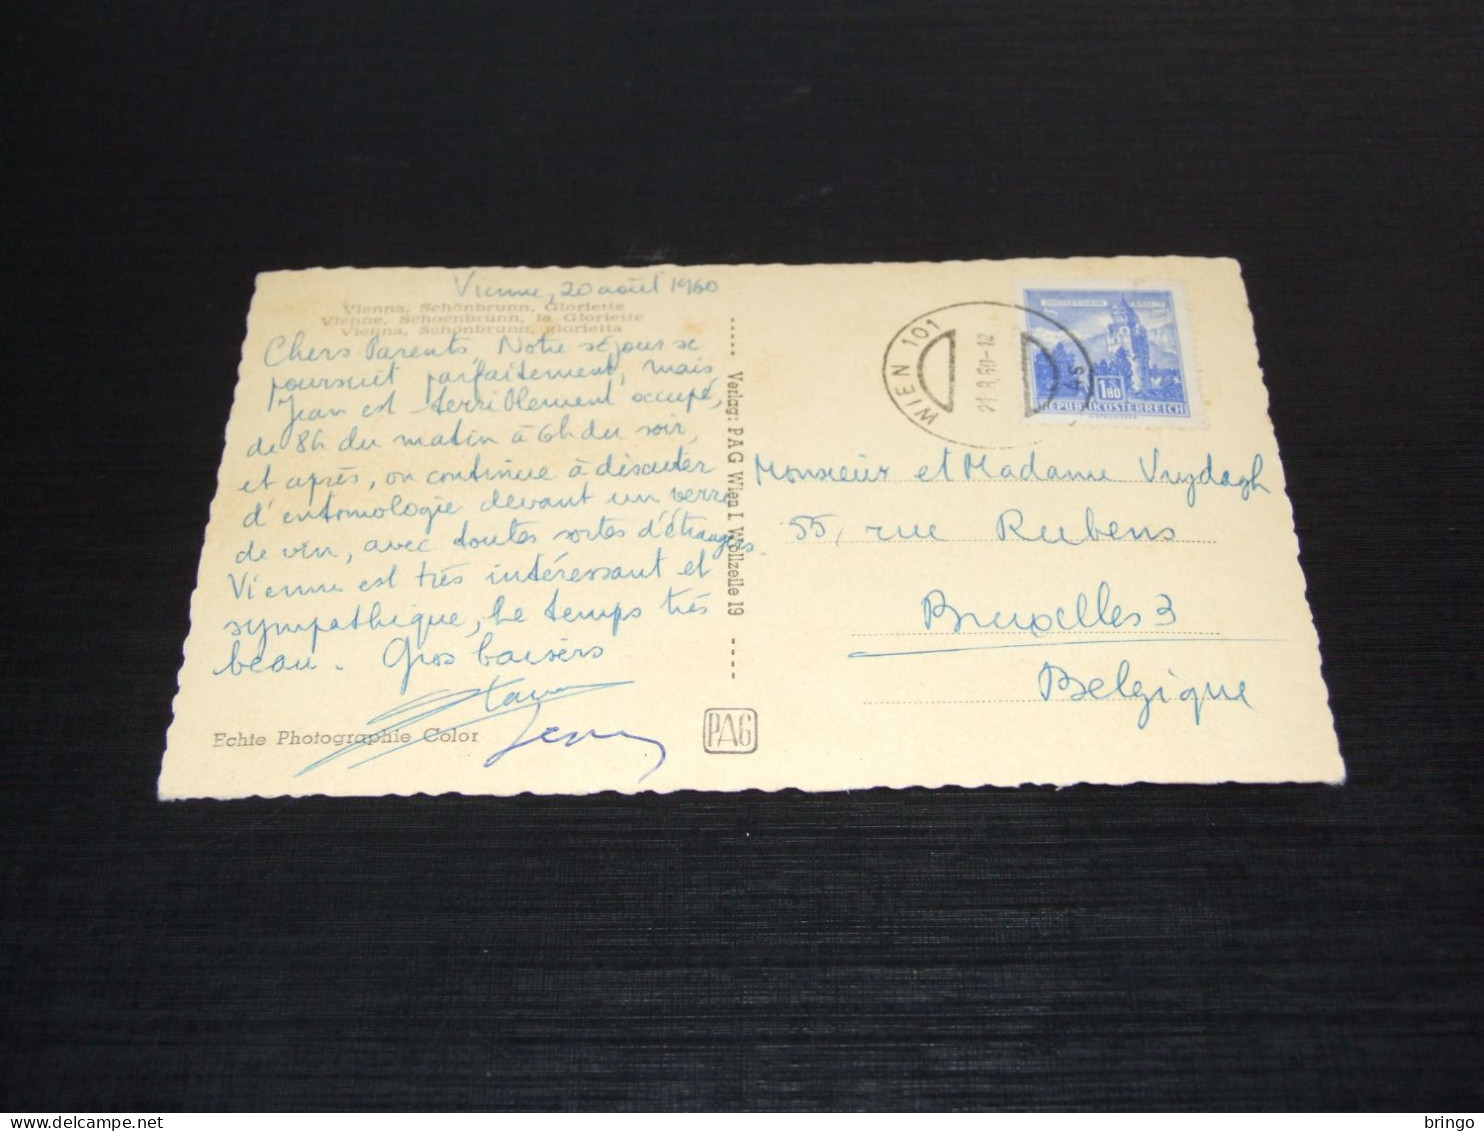 Vienne, 20 août 1960
Vienna, Schönbrunn, Gloriette
Vienne, Schoenbrunn, la Gloriette
Vienna, Schönbrunn, glorietta
Chers Parents, Notre séjour se
poursuit parfaitement, mais
Jean est terriblement occupé,
de 8h du matin à 6h du soir,
et après, on continue à discuter
d'entomologie devant un verre
de vin, avec toutes sortes d'étrangers
Vienne est très intéressant et
sympathique, le temps très
beau. Gros baisers
Jean
Echte Photographie Color
Verlag: PAG Wien I Wollzeile 19
PAG
WIEN 101
21.8.60-12
1.80
REPUBLIK ÖSTERREICH
Monsieur et Madame Vuydagh
55, rue Rubens
Bruxelles 3
Belgique
bringo